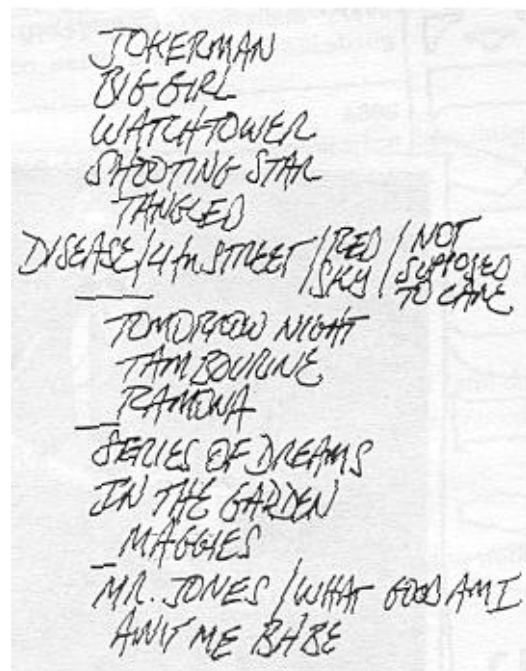 JOKERMAN
BIG GIRL
WATCHTOWER
SHOOTING STAR
TANGLED
DISEASE / 4th STREET / RED SKY / NOT SUPPOSED TO CARE
TOMORROW NIGHT
TAMBOURINE
RAMONA
SERIES OF DREAMS
IN THE GARDEN
MAGGIES
MR. JONES / WHAT GOOD AM I
AINT ME BABE